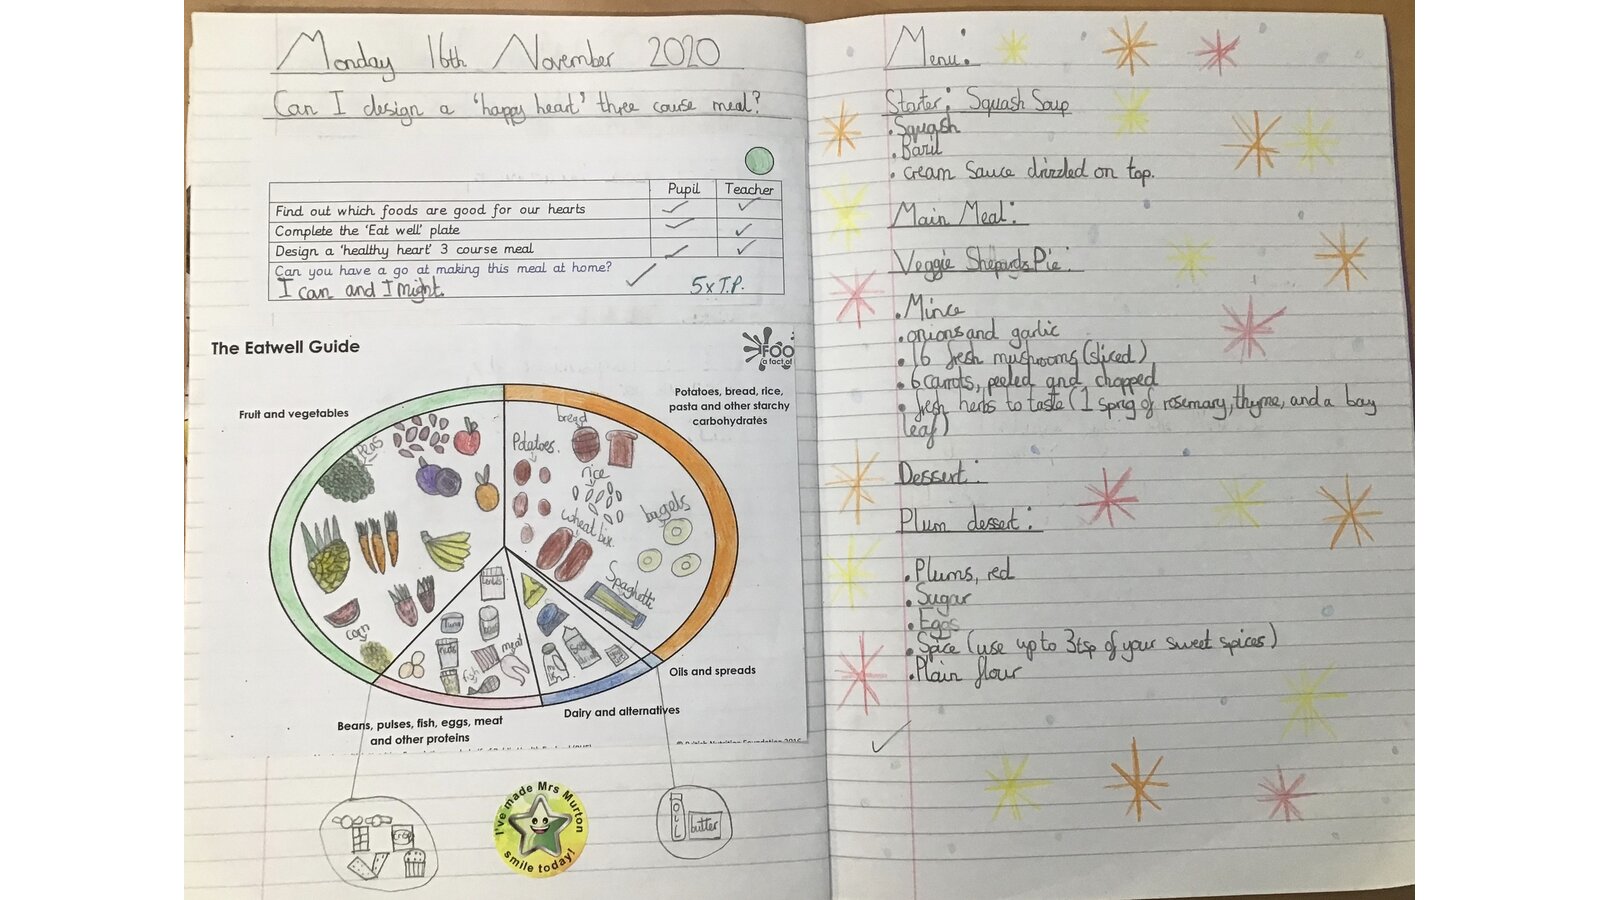 Monday 16th November 2020
Can I design a 'happy heart' three course meal?
Pupil Teacher
Find out which foods are good for our hearts
Complete the 'Eat well' plate
Design a 'healthy heart' 3 course meal
Can you have a go at making this meal at home?
I can and I might.
5xT.P.
The Eatwell Guide
FOO
a fact of
Fruit and vegetables
Potatoes, bread, rice,
pasta and other starchy
carbohydrates
Peas
corn
bread
Potatoes.
rice
wheat bix
bagels
Spaghetti
Tuna
nuts
fish
meat
Oils and spreads
Dairy and alternatives
Beans, pulses, fish, eggs, meat
and other proteins
OIL
butter
I've made Mrs Murton
smile today!
Menu:
Starter: Squash Soup
• Squash
• Bazil
• cream Sauce drizzled on top.
Main Meal:
Veggie Shepards Pie:
• Mince
• onions and garlic
• 16 fresh mushrooms (sliced)
• 6 carrots, peeled and chopped
• fresh herbs to taste (1 sprig of rosemary, thyme, and a bay
leaf)
Dessert:
Plum dessert:
• Plums, red
• Sugar
• Eggs
• Spice (use up to 3tsp of your sweet spices)
• Plain flour